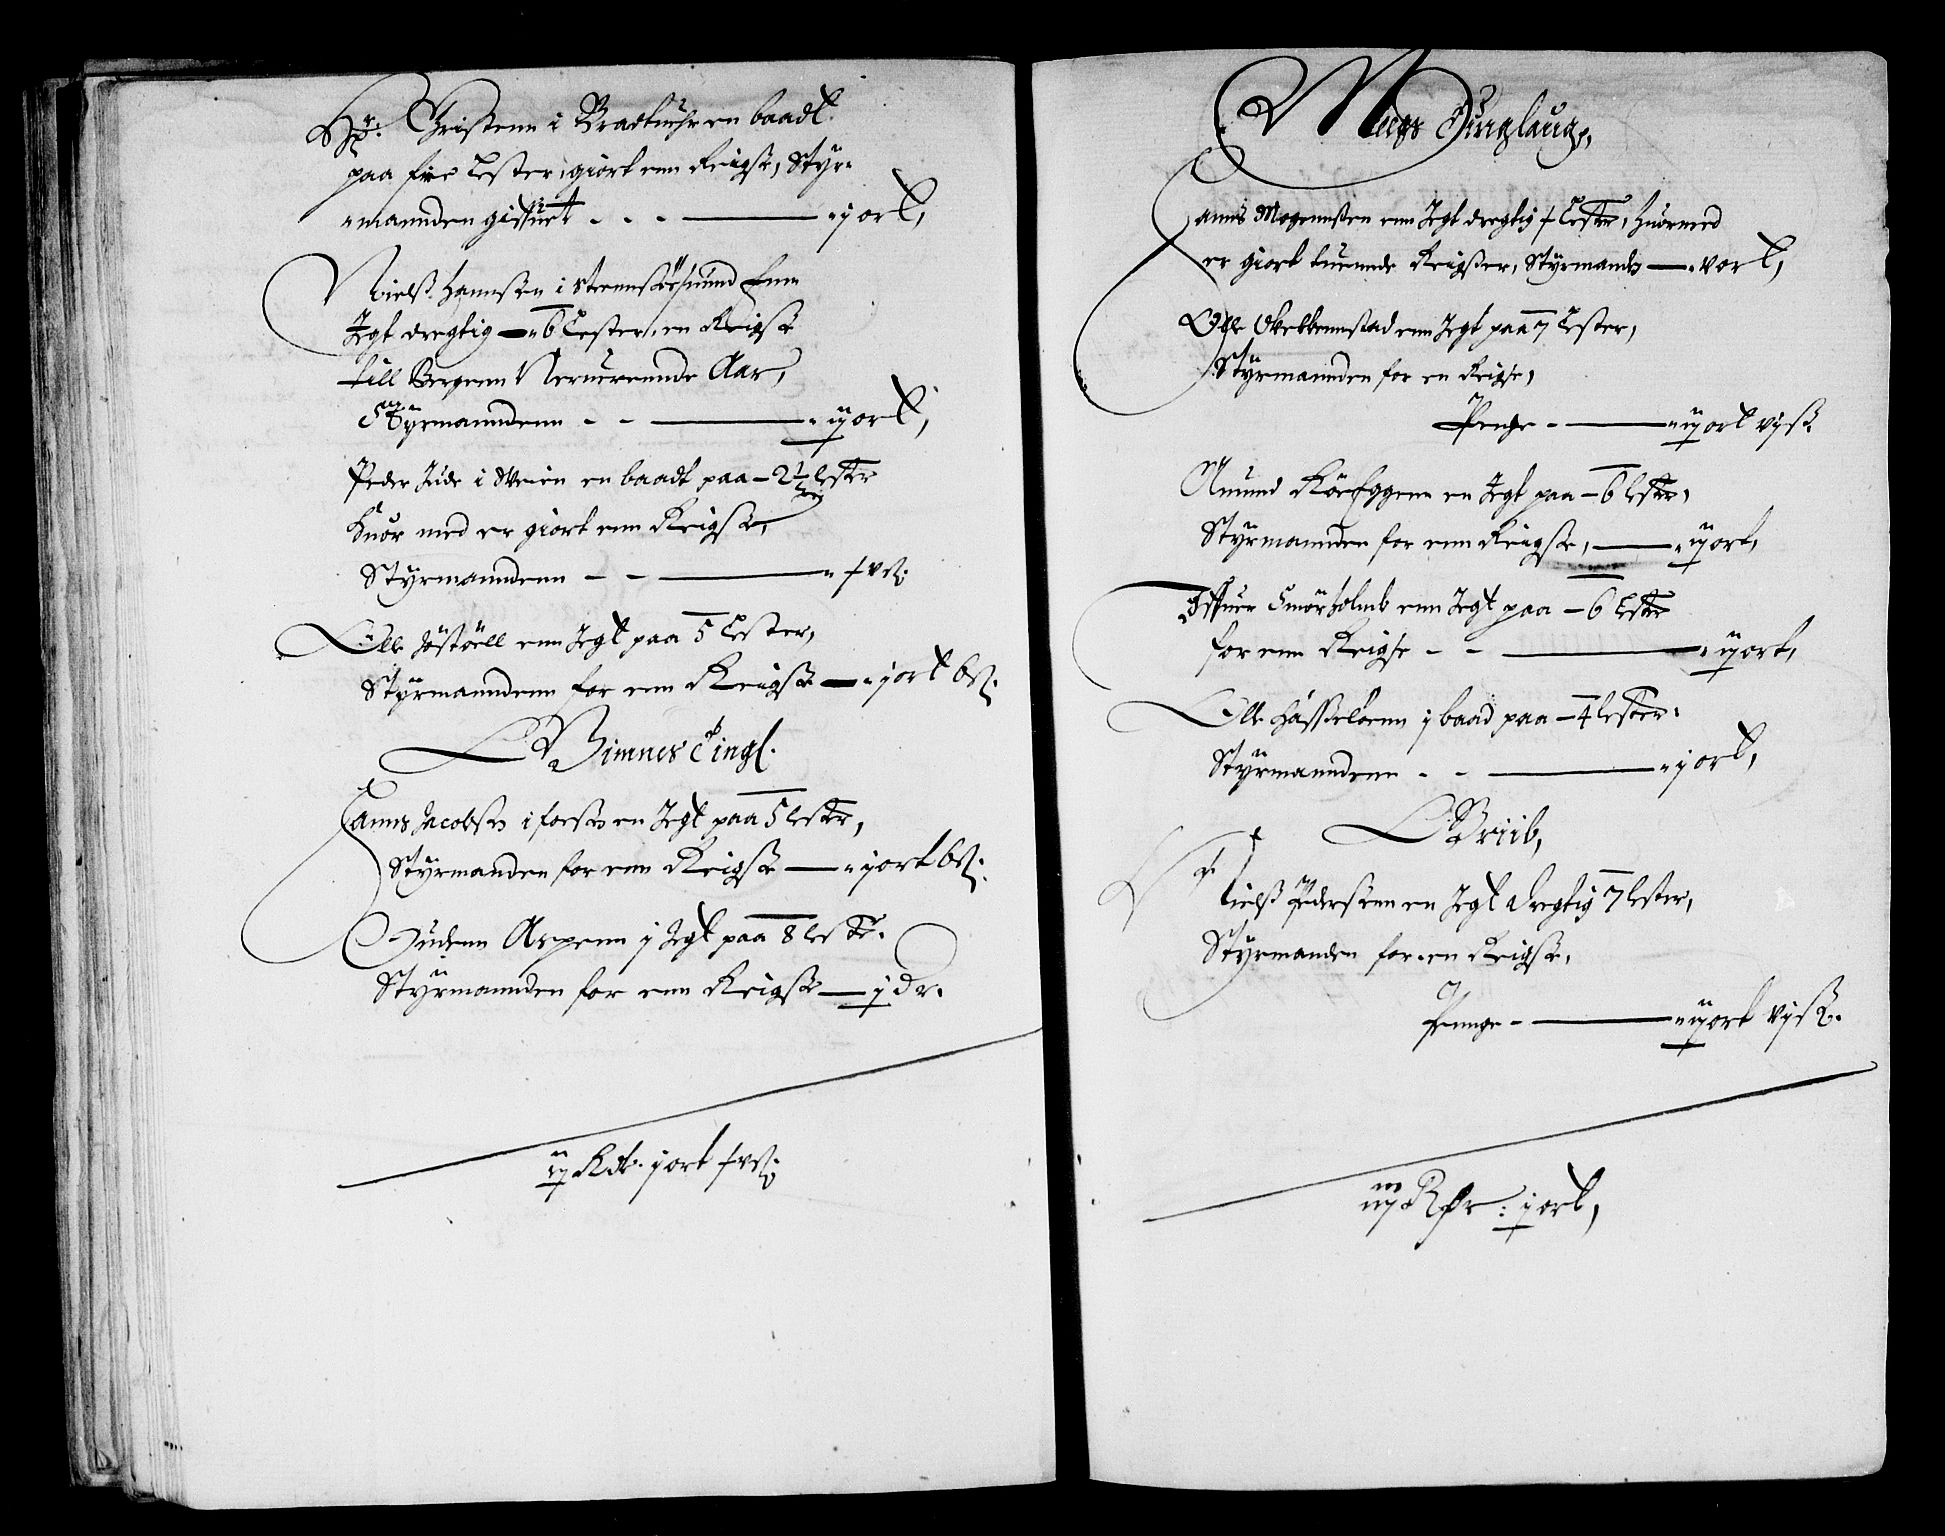 Hr: Christenn i Bradtuehr en baadt
paa fire Lester, giort enn Reigse, Styr-
manden gifuet - - - ij ort,
Nielss Hanssen i Steensøesund Enn
Jegt dregtig - 6 Lester, en Reigse
till Bergenn Neruerennde Aar,
Styrmanndenn - - ij ort,
Peder Jude i Veien en baadt paa - 2½ lester
Huor med er giort enn Reigse,
Styrmanndenn - -
Olle Jøstöell enn Jegt paa 5 Lester,
Styrmanndenn for enn Reigse - j ort 6 ß:
Bimnes Tingl.
Hanns Jacobsen i forsen en Jegt paa 5 lester,
Styrmanden for enn Reigse - j ort 6 ß:
Gudenn Aspenn j Jegt paa 8 leste.
Styrmannden for enn Reigse - j dr.
ij Rdr. j ort
Nees Tinglaug,
Hanns Mogennssen enn Jegt dregtig Lester, huormed
er giort tuennde Reigser, Styrmands - v ort,
Olle Skelbennstad enn Jegt paa 7 Lester,
Styrmannden for en Reigse,
Penge - ij ort vj ß.
Amund enn Jegt paa - 6 lester,
Styrmannden for enn Reigse, - ij ort,
Iffuer Smörholmb enn Jegt paa - 6 Lester
for enn Reigse - - ij ort,
Olle Hasseløenn j baad paa - 4 lester.
Styrmanndenn - - j ort,
Britb,
Hr. Nielss Pederssenn en Jegt dregtig 7 lester,
Styrmanden for en Reigse,
Pennge - ij ort vj ß.
iiij Rdr: j ort,